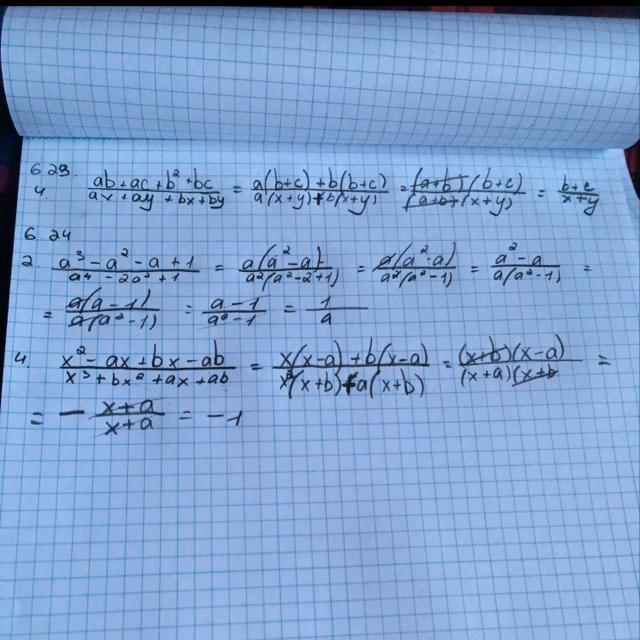 6.23.
4. (ab+ac+b²+bc)/(ax+ay+bx+by) = (a(b+c)+b(b+c))/(a(x+y)+b(x+y)) = ((a+b)(b+c))/((a+b)(x+y)) = (b+c)/(x+y)
6.24
2. (a³-a²-a+1)/(a⁴-2a²+1) = (a(a²-a))/(a²(a²-2+1)) = (a(a²-a))/(a²(a²-1)) = (a²-a)/(a(a²-1)) =
= (a(a-1))/(a(a²-1)) = (a-1)/(a²-1) = 1/a
4. (x²-ax+bx-ab)/(x³+bx²+ax+ab) = (x(x-a)+b(x-a))/(x²(x+b)+a(x+b)) = ((x+b)(x-a))/((x+a)(x+b)) =
= -(x+a)/(x+a) = -1